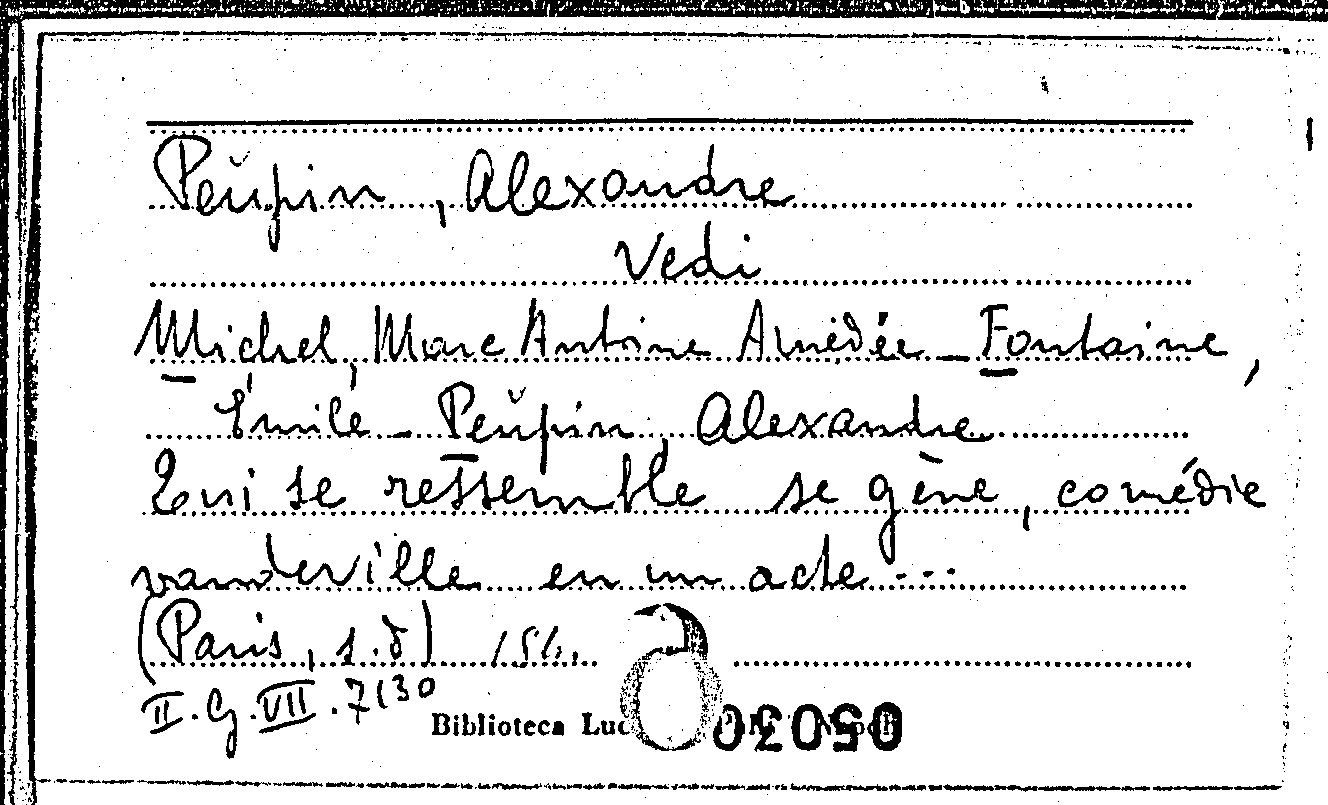 Peŭpin, Alexandre
Vedi
Michel, Marc Antoine Amédée - Fontaine,
Émile - Peŭpin, Alexandre
Qui se ressemble se gène, comédie
vaudeville en un acte ...
(Paris, s.d)
II.G.VII.7130
Biblioteca